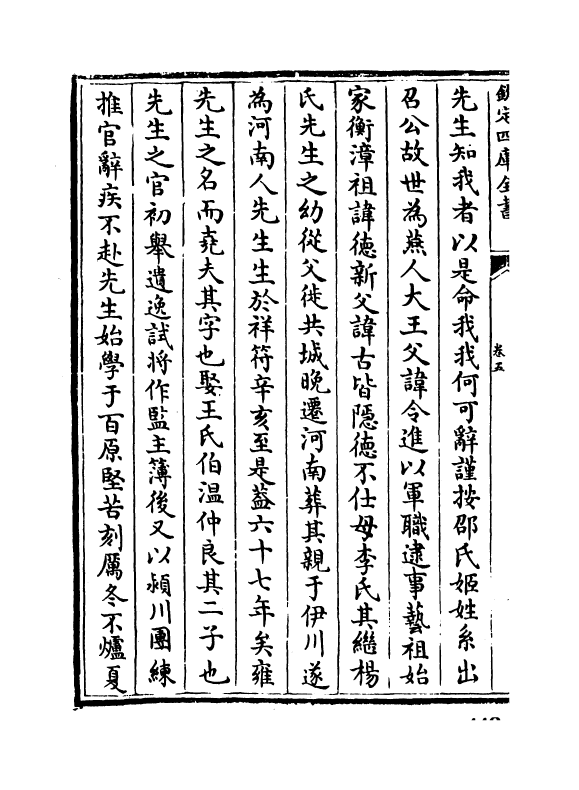 欽定四庫全書
卷五
先生知我者以是命我我何可辭謹按邵氏姬姓系出
召公故世為燕人大王父諱令進以軍職逮事藝祖始
家衡漳祖諱德新父諱古皆隱德不仕母李氏其繼楊
氏先生之幼從父徙共城晚遷河南葬其親于伊川遂
為河南人先生生於祥符辛亥至是葢六十七年矣雍
先生之名而堯夫其字也娶王氏伯温仲良其二子也
先生之官初舉遺逸試將作監主簿後又以潁川團練
推官辭疾不赴先生始學于百原堅苦刻厲冬不爐夏